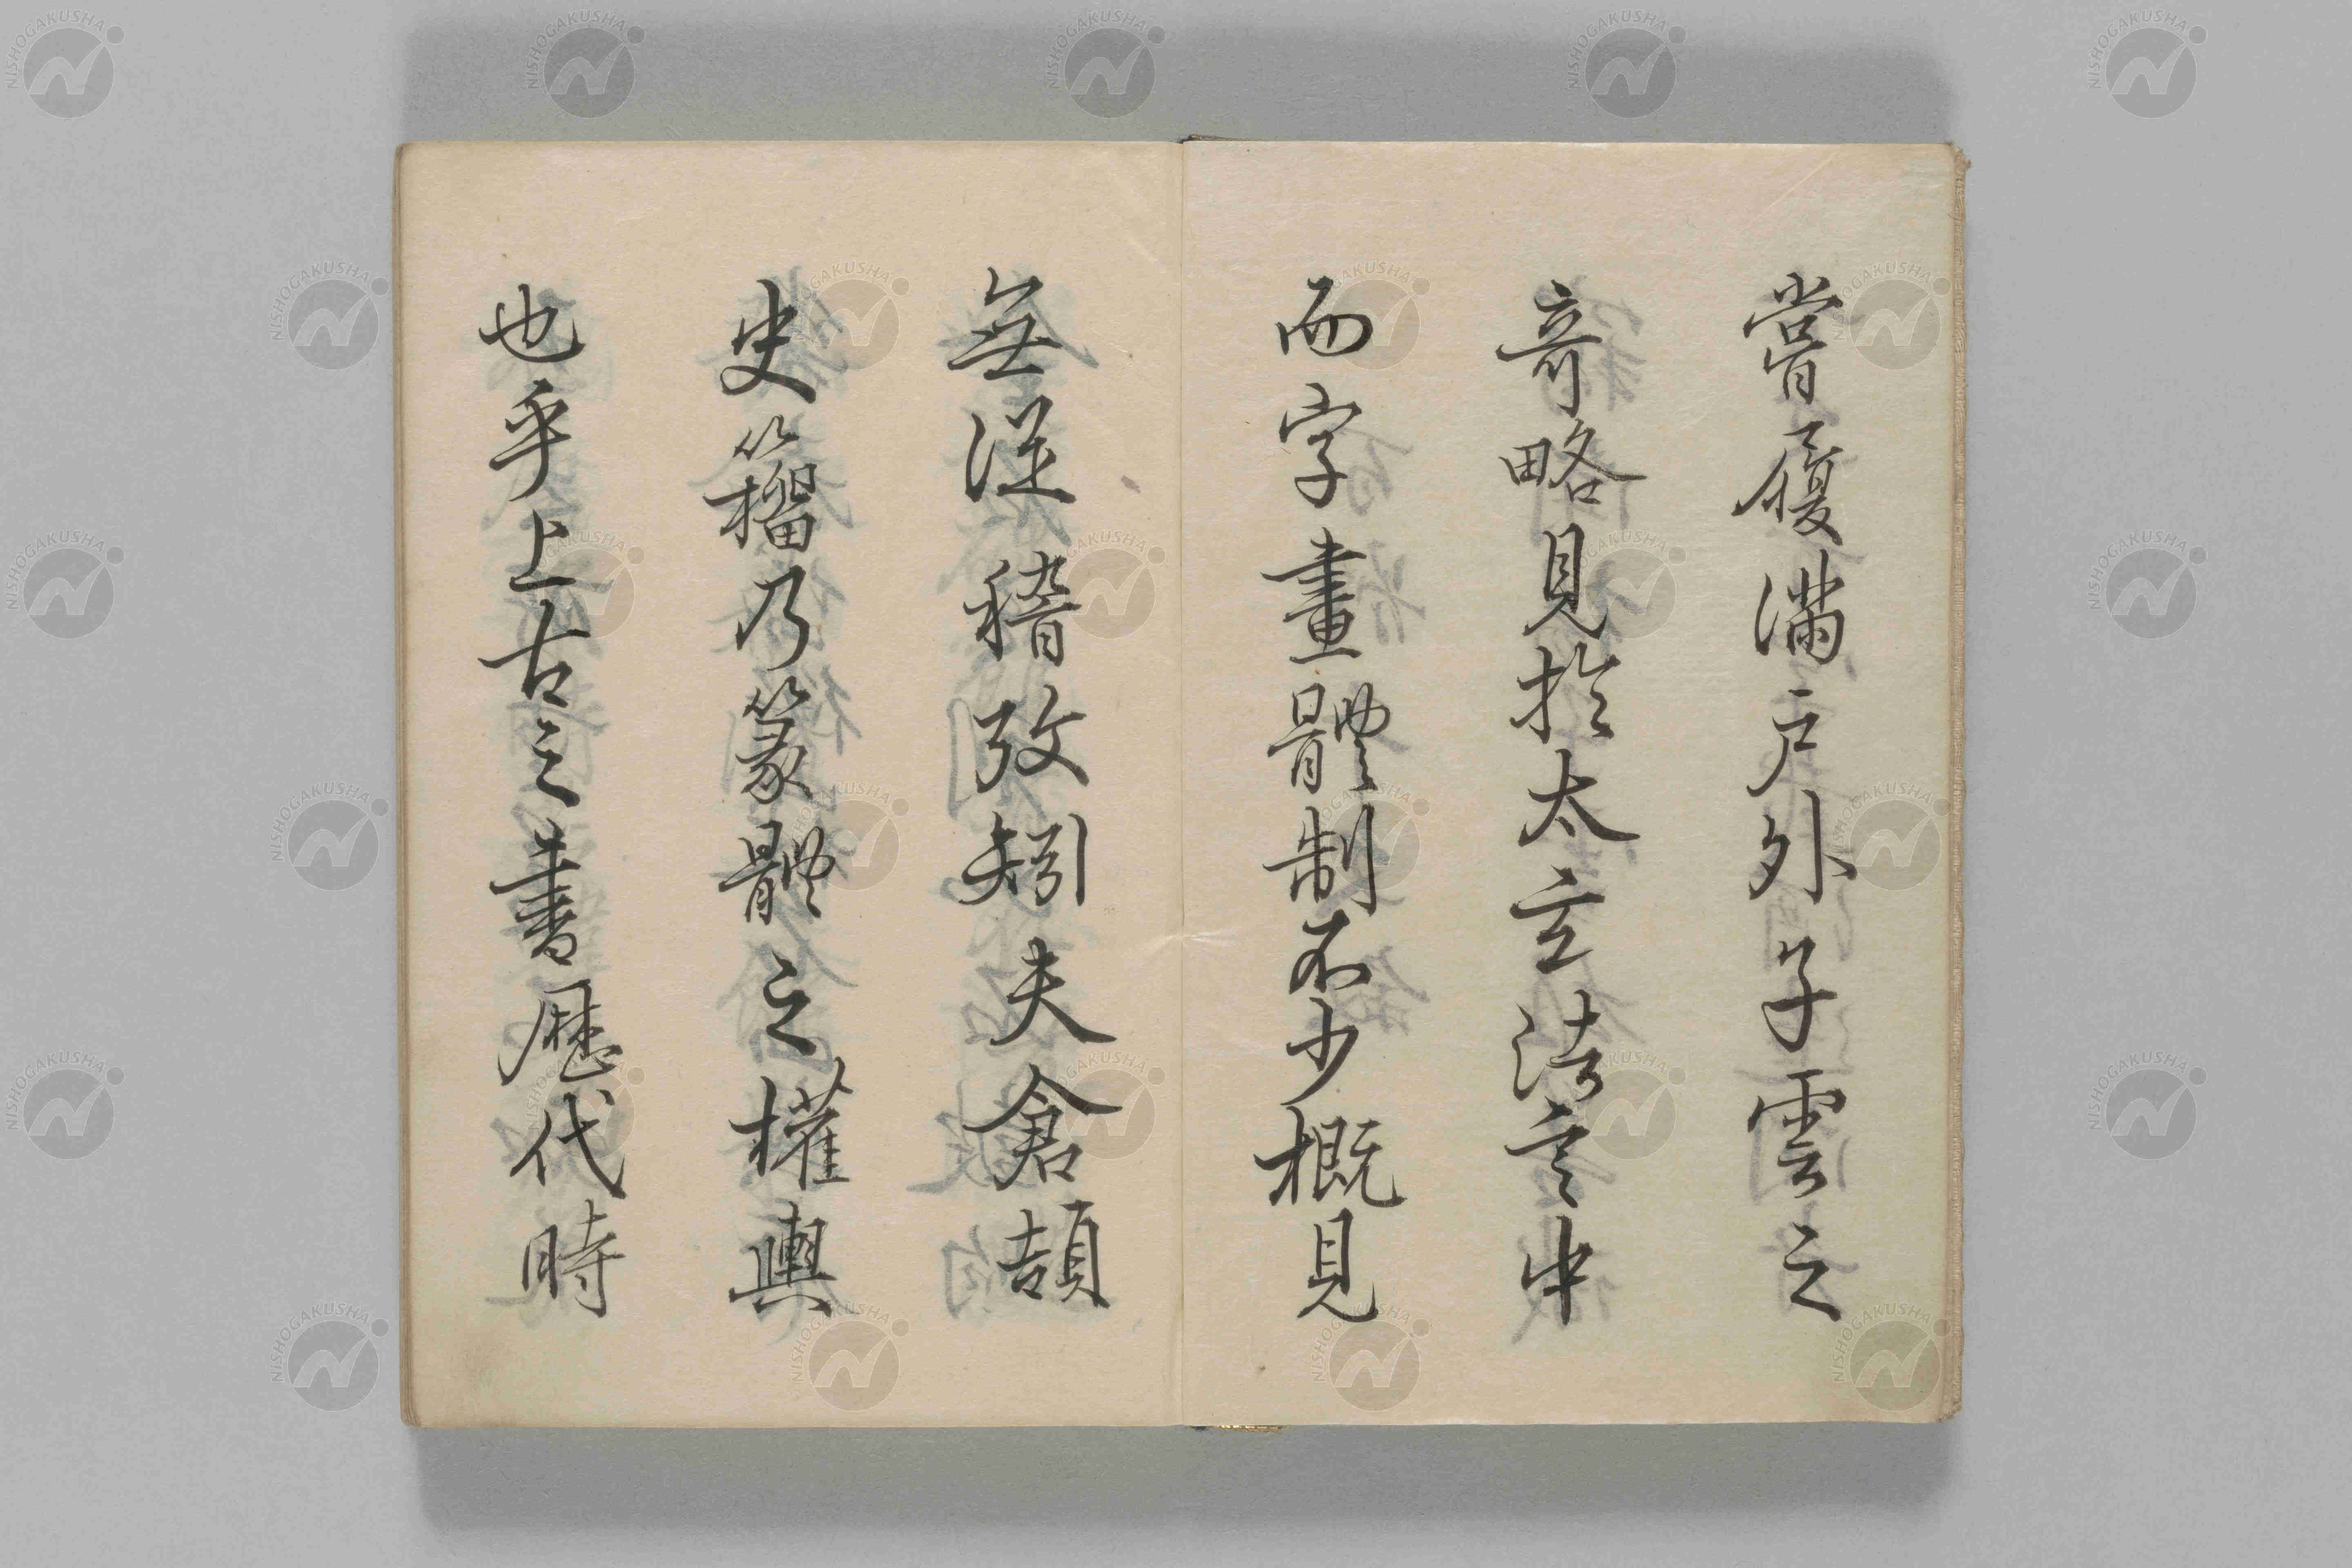 嘗履満戸外子雲之
奇略見於太玄法言中
而字畫體制不少概見
無從稽攷矧夫倉頡
史籀乃篆體之權輿
也乎上古之書歴代時
NISHOGAKUSHA